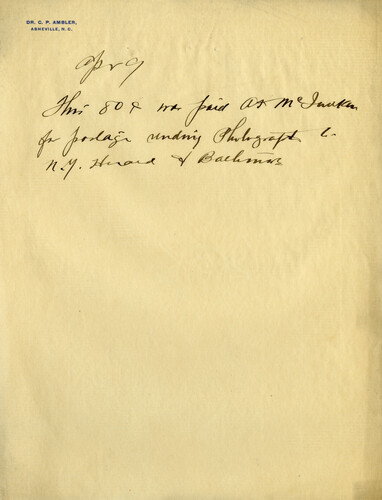 DR. C. P. AMBLER,
ASHEVILLE, N. C.
Apr 9
This 80¢ was paid at
for postage sending Photographs to
N.Y. Herald & Baltimore